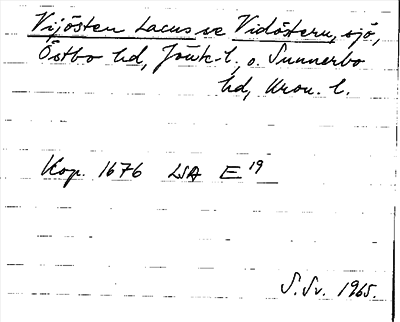 Vijösten Lacus se Vidöstern, sjö,
Östbo hd, Jönk. l. o. Sunnerbo
hd, Kron. l.
Kop. 1676 LSA E 19
S. Sv. 1965.